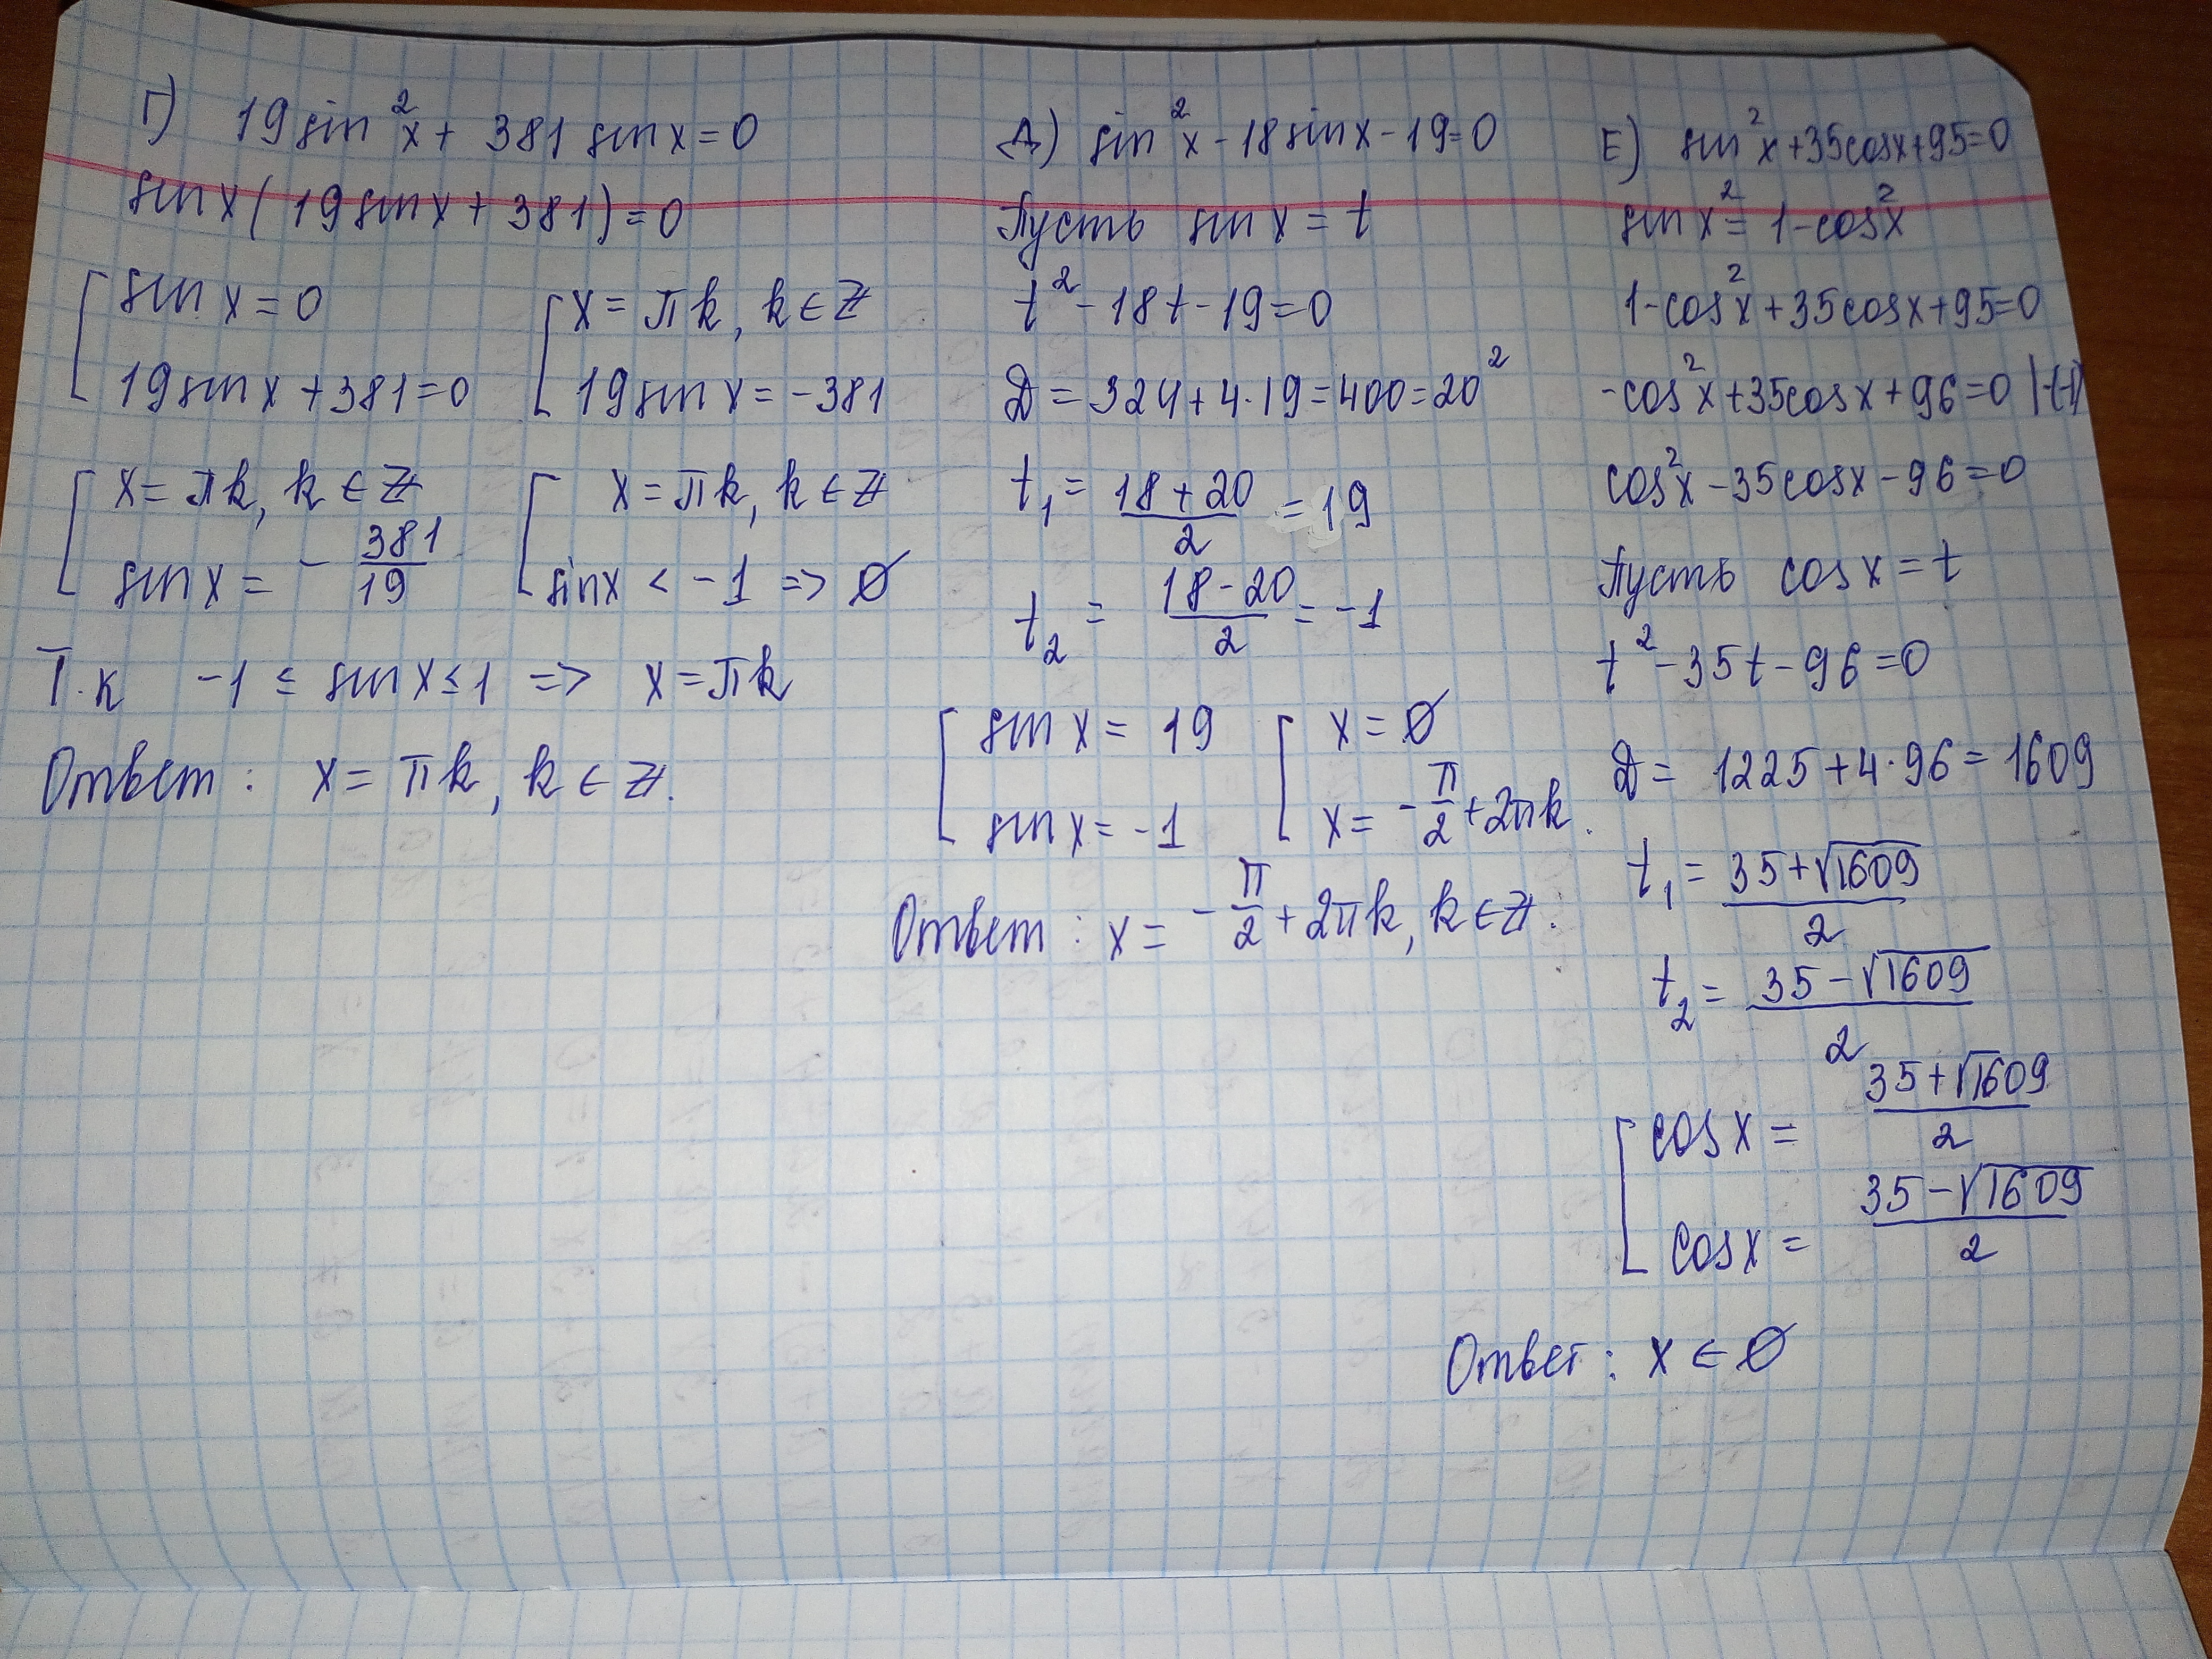 Г) 19 sin²x + 381 sin x = 0
sin x (19 sin x + 381) = 0
[ sin x = 0
19 sin x + 381 = 0
[ x = πk, k ∈ Z
19 sin x = -381
[ x = πk, k ∈ Z
sin x = - 381/19
[ x = πk, k ∈ Z
sin x < -1 => Ø
Т.к -1 ≤ sin x ≤ 1 => x = πk
Ответ: x = πk, k ∈ Z.
Д) sin²x - 18 sin x - 19 = 0
Пусть sin x = t
t² - 18t - 19 = 0
D = 324 + 4·19 = 400 = 20²
t₁ = (18 + 20)/2 = 19
t₂ = (18 - 20)/2 = -1
[ sin x = 19
sin x = -1
[ x = Ø
x = - π/2 + 2πk.
Ответ: x = - π/2 + 2πk, k ∈ Z.
Е) sin²x + 35 cos x + 95 = 0
sin x² = 1 - cos²x
1 - cos²x + 35 cos x + 95 = 0
-cos²x + 35 cos x + 96 = 0 |·(-1)
cos²x - 35 cos x - 96 = 0
Пусть cos x = t
t² - 35t - 96 = 0
D = 1225 + 4·96 = 1609
t₁ = (35 + √1609)/2
t₂ = (35 - √1609)/2
[ cos x = (35 + √1609)/2
cos x = (35 - √1609)/2
Ответ: x ∈ Ø